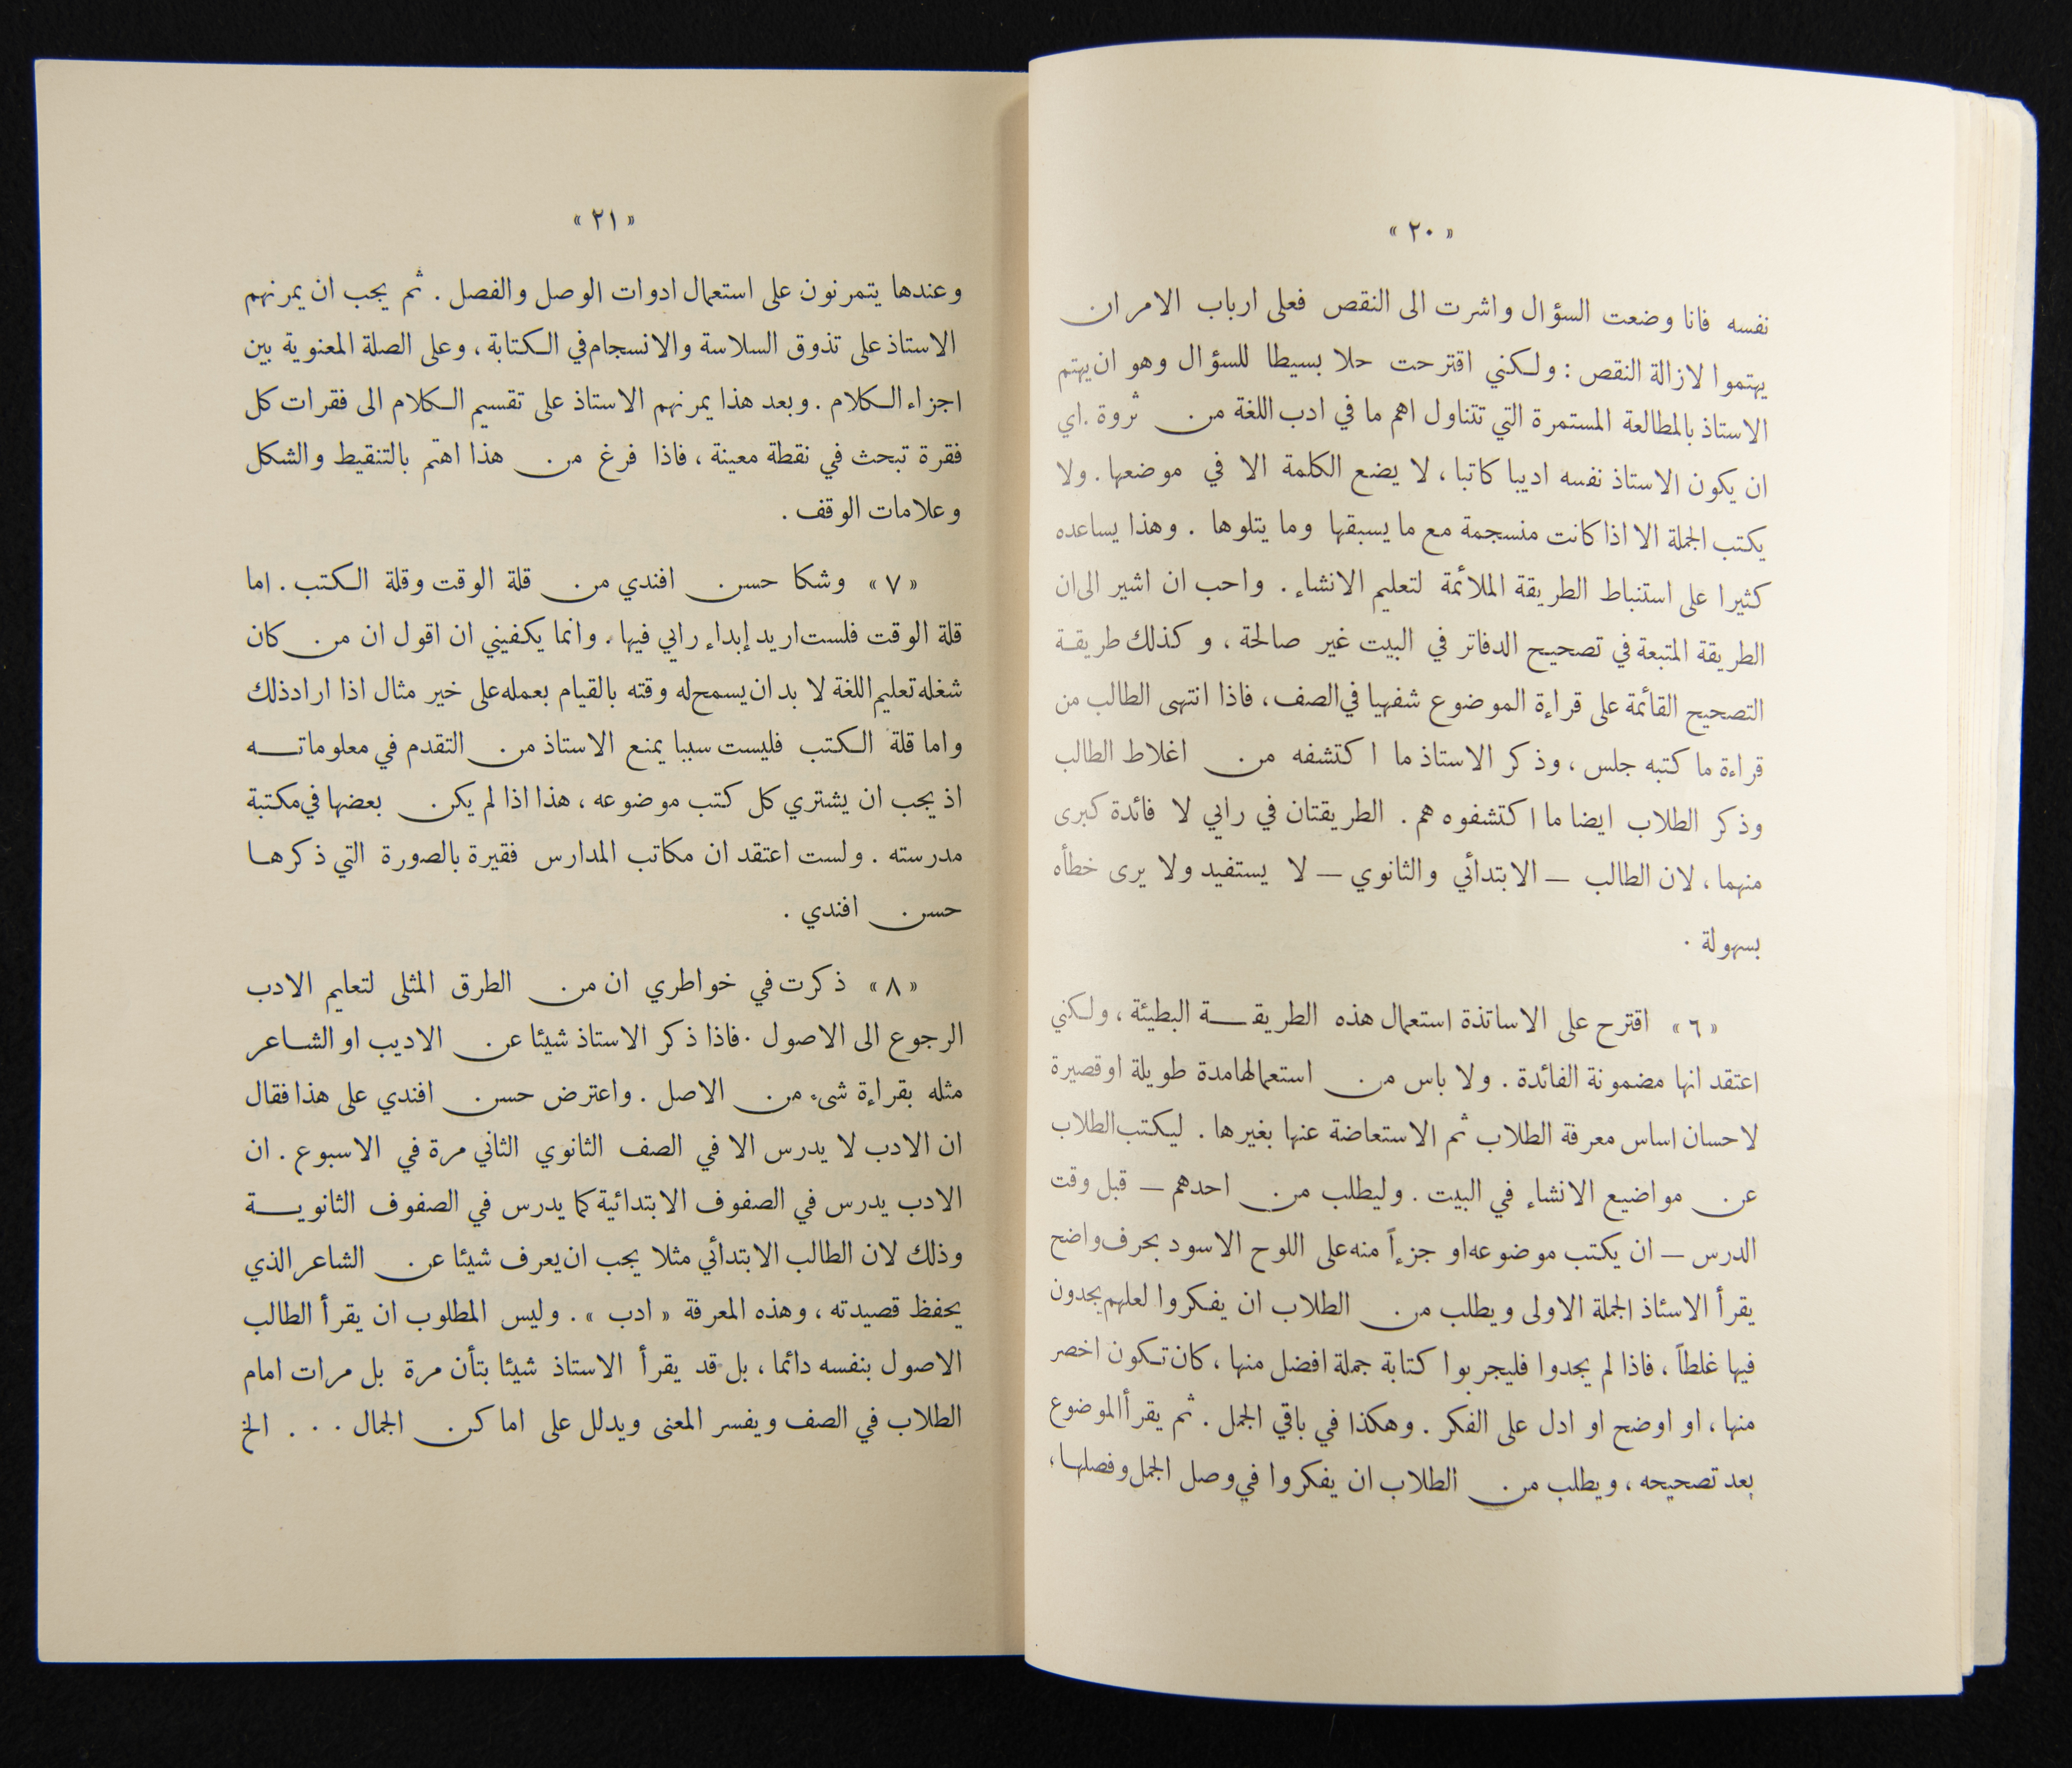 « ٢٠ »
نفسه فانا وضعت السؤال واشرت الى النقص فعلى ارباب الامر ان
يهتموا لازالة النقص : ولكني اقترحت حلا بسيطا للسؤال وهو ان يهتم
الاستاذ بالمطالعة المستمرة التي تتناول اهم ما في ادب اللغة من ثروة . اي
ان يكون الاستاذ نفسه اديبا كاتبا ، لا يضع الكلمة الا في موضعها . ولا
يكتب الجملة الا اذا كانت منسجمة مع ما يسبقها وما يتلوها . وهذا يساعده
كثيرا على استنباط الطريقة الملائمة لتعليم الانشاء . واحب ان اشير الى ان
الطريقة المتبعة في تصحيح الدفاتر في البيت غير صالحة ، وكذلك طريقة
التصحيح القائمة على قراءة الموضوع شفهيا في الصف ، فاذا انتهى الطالب من
قراءة ما كتبه جلس ، وذكر الاستاذ ما اكتشفه من اغلاط الطالب
وذكر الطلاب ايضا ما اكتشفوه هم . الطريقتان في رابي لا فائدة كبرى
منهما ، لان الطالب — الابتدائي والثانوي — لا يستفيد ولا يرى خطأه
بسهولة .
« ٦ » اقترح على الاساتذة استعمال هذه الطريقة البطيئة ، ولكني
اعتقد انها مضمونة الفائدة . ولا باس من استعمالها مدة طويلة او قصيرة
لاحسان اساس معرفة الطلاب ثم الاستعاضة عنها بغيرها . ليكتب الطلاب
عن مواضيع الانشاء في البيت . وليطلب من احدهم — قبل وقت
الدرس — ان يكتب موضوعه او جزءاً منه على اللوح الاسود بحرف واضح
يقرأ الاستاذ الجملة الاولى ويطلب من الطلاب ان يفكروا لعلهم يجدون
فيها غلطاً ، فاذا لم يجدوا فليجربوا كتابة جملة افضل منها ، كان تكون اخصر
منها ، او اوضح او ادل على الفكر . وهكذا في باقي الجمل . ثم يقرأ الموضوع
بعد تصحيحه ، ويطلب من الطلاب ان يفكروا في وصل الجمل وفصلها ،
« ٢١ »
وعندها يتمرنون على استعمال ادوات الوصل والفصل . ثم يجب ان يمرنهم
الاستاذ على تذوق السلاسة والانسجام في الكتابة ، وعلى الصلة المعنوية بين
اجزاء الكلام . وبعد هذا يمرنهم الاستاذ على تقسيم الكلام الى فقرات كل
فقرة تبحث في نقطة معينة ، فاذا فرغ من هذا اهتم بالتنقيط والشكل
وعلامات الوقف .
« ٧ » وشكا حسن افندي من قلة الوقت وقلة الكتب . اما
قلة الوقت فلست اريد إبداء رابي فيها . وانما يكفيني ان اقول ان من كان
شغله تعليم اللغة لا بد ان يسمح له وقته بالقيام بعمله على خير مثال اذا اراد ذلك
واما قلة الكتب فليست سببا يمنع الاستاذ من التقدم في معلوماته
اذ يجب ان يشتري كل كتب موضوعه ، هذا اذا لم يكن بعضها في مكتبة
مدرسته . ولست اعتقد ان مكاتب المدارس فقيرة بالصورة التي ذكرها
حسن افندي .
« ٨ » ذكرت في خواطري ان من الطرق المثلى لتعليم الادب
الرجوع الى الاصول . فاذا ذكر الاستاذ شيئا عن الاديب او الشاعر
مثله بقراءة شيء من الاصل . واعترض حسن افندي على هذا فقال
ان الادب لا يدرس الا في الصف الثانوي الثاني مرة في الاسبوع . ان
الادب يدرس في الصفوف الابتدائية كما يدرس في الصفوف الثانوية
وذلك لان الطالب الابتدائي مثلا يجب ان يعرف شيئا عن الشاعر الذي
يحفظ قصيدته ، وهذه المعرفة « ادب » . وليس المطلوب ان يقرأ الطالب
الاصول بنفسه دائما ، بل قد يقرأ الاستاذ شيئا بتأن مرة بل مرات امام
الطلاب في الصف ويفسر المعنى ويدلل على اماكن الجمال . . . الخ